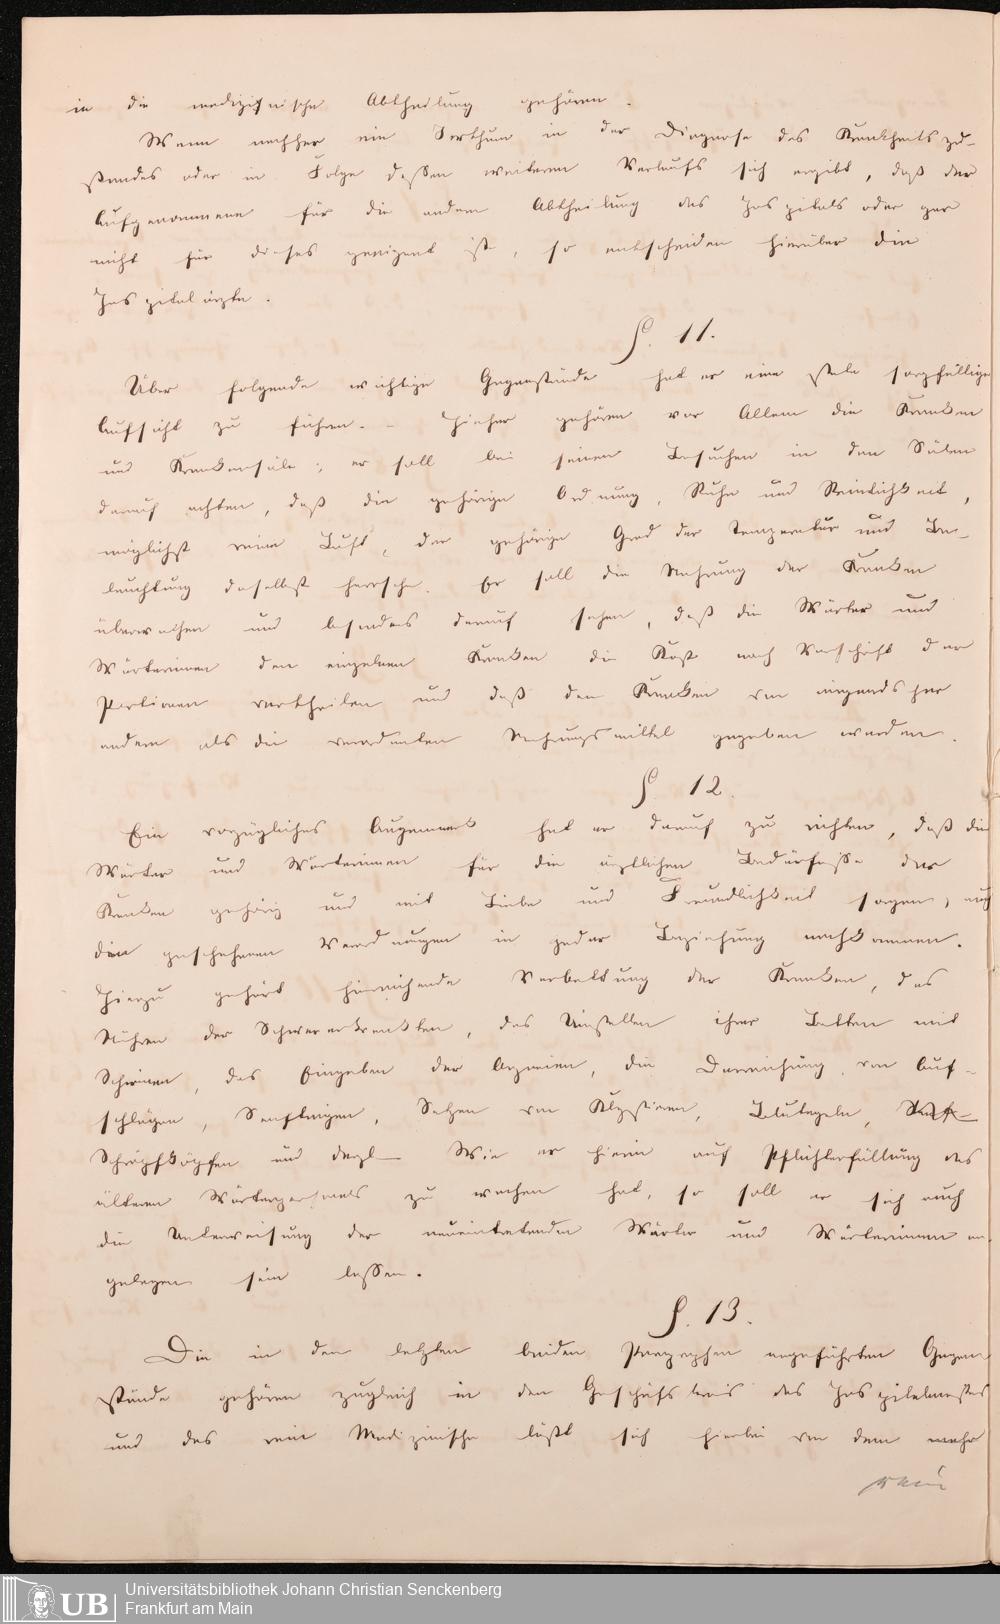 in die medizinische Abtheilung gehören.
Wenn nachher ein Irrthum in der Diagnose des Krankheitszu-
standes oder in Folge dessen weiteren Verlaufs sich ergibt, daß der
Aufgenommene für die andere Abtheilung des Hospitals oder gar
nicht für dieses geeignet ist, so entscheiden hierüber die
Hospitalärzte.
§. 11.
Über folgende wichtige Gegenstände hat er eine stete sorgfältige
Aufsicht zu führen. – Hieher gehören vor Allem die Kranken
und Krankensäle; er soll bei seinen Besuchen in den Sälen
darauf achten, daß die gehörige Ordnung, Ruhe und Reinlichkeit,
möglichst reine Luft, der gehörige Grad der Temperatur und Be-
leuchtung daselbst herrsche. Er soll die Nahrung der Kranken
überwachen und besonders darauf sehen, daß die Wärter und
Wärterinnen den einzelnen Kranken die Kost nach Vorschrift der
Portionen vertheilen und daß den Kranken von nirgends her
andere als die verordneten Nahrungsmittel gegeben werden.
§. 12.
Ein vorzügliches Augenmerk hat er darauf zu richten, daß die
Wärter und Wärterinnen für die ärztlichen Bedürfnisse der
Kranken gehörig und mit Liebe und Freundlichkeit sorgen, auch
den geschehenen Verordnungen in jeder Beziehung nachkommen.
Hierzu gehört hinreichende Verbettung der Kranken, das
Nähren der Schwererkrankten, das Umstellen ihrer Betten mit
Schirmen, das Eingeben der Arzneien, die Darreichung von Auf-
schlägen, Senfteigen, Setzen von Klystieren, Blutegeln,
Schröpfköpfen und dergl. Wie er hierin auf Pflichterfüllung des
älteren Wärterpersonals zu wachen hat, so soll er sich auch
die Unterweisung der neueintretenden Wärter und Wärterinnen an-
gelegen sein lassen.
§. 13.
Die in den letzten beiden Paragraphen angeführten Gegen-
stände gehören zugleich in den Geschäftskreis des Hospitalmeisters
und das rein Medizinische läßt sich hierbei von dem mehr
Universitätsbibliothek Johann Christian Senckenberg
Frankfurt am Main
UB